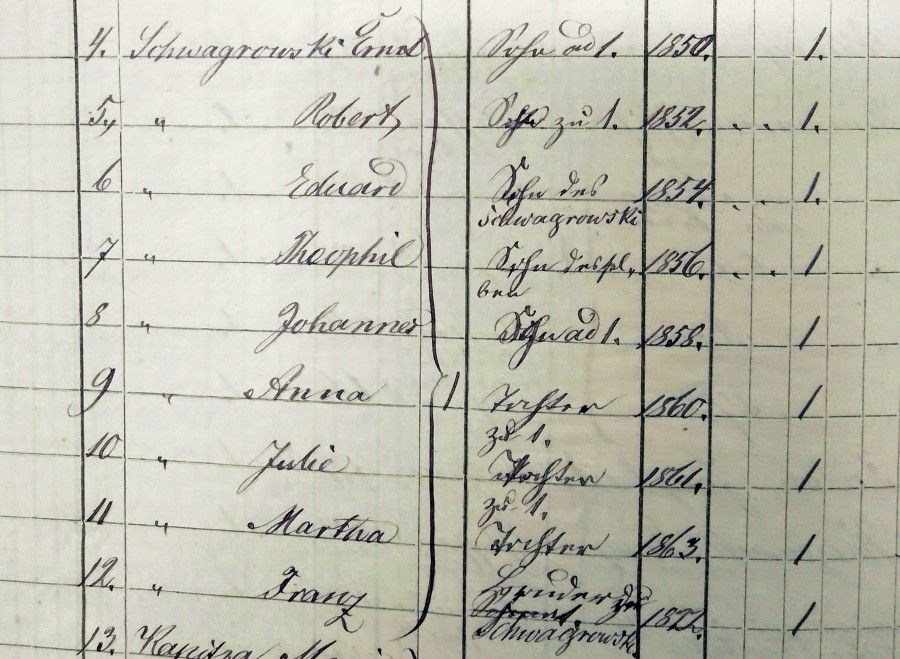 4. Schwagrowski Ernst Sohn ad 1. 1850. 1.
5. " Robert Sohn zu 1. 1852. " " 1.
6 " Eduard Sohn des 1854. 1.
Schwagrowski
7 " Theophil Sohn dessel- 1856. " " 1
ben
8 " Johannes Sohn ad 1. 1858. 1
9 " Anna 1 Tochter 1860. 1
zu 1.
10 " Julie Tochter 1861. 1
zu 1.
11 " Martha Tochter 1863. 1
12. " Franz 1
Schwagrowski
13. Kanitza